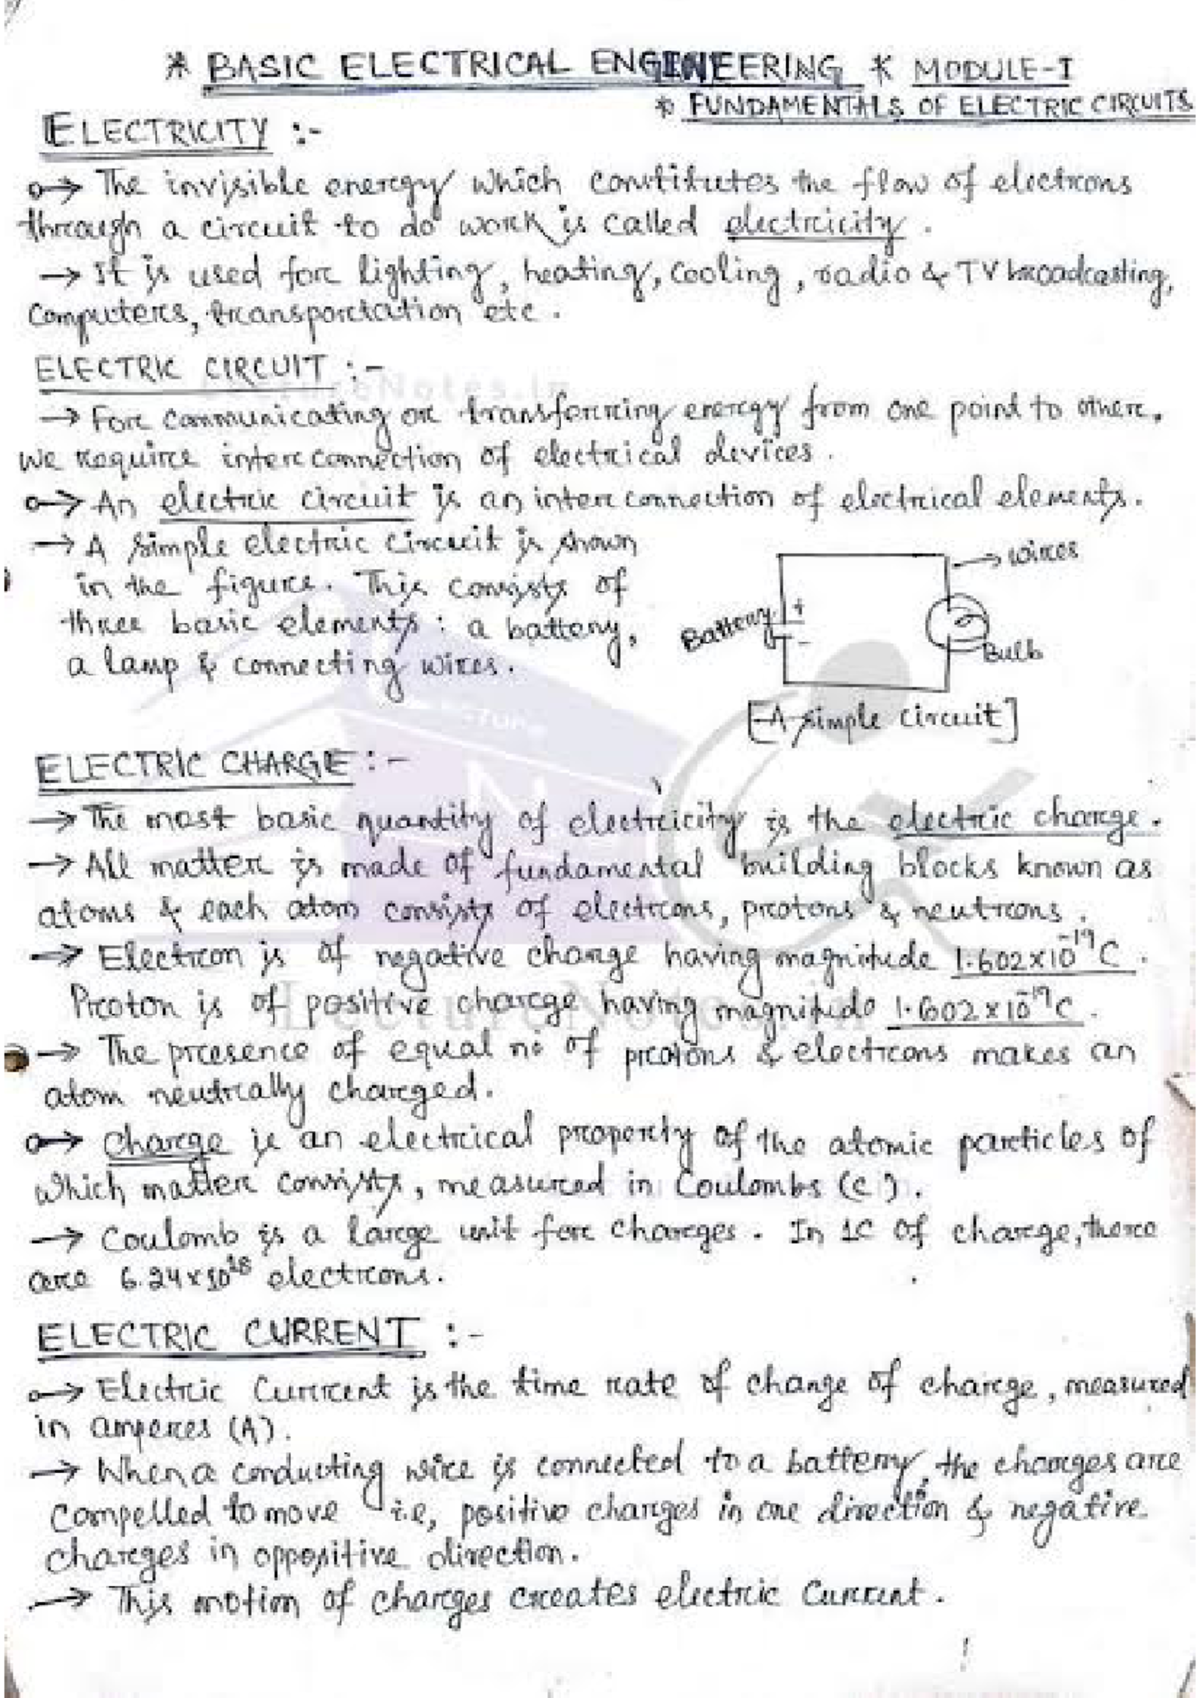 * BASIC ELECTRICAL ENGINEERING * MODULE-I
* FUNDAMENTALS OF ELECTRIC CIRCUITS
ELECTRICITY :-
→ The invisible energy which constitutes the flow of electrons
through a circuit to do work is called electricity.
→ It is used for lighting, heating, cooling, radio & TV broadcasting,
computers, transportation etc.
ELECTRIC CIRCUIT :-
LectureNotes.in
→ For communicating or transferring energy from one point to other,
we require interconnection of electrical devices.
→ An electric circuit is an interconnection of electrical elements.
→ A simple electric circuit is shown
in the figure. This consists of
three basic elements: a battery,
a lamp & connecting wires.
→ wires
Battery + -
Bulb
[A simple circuit]
ELECTRIC CHARGE :-
→ The most basic quantity of electricity is the electric charge.
→ All matter is made of fundamental building blocks known as
atoms & each atom consists of electrons, protons & neutrons.
→ Electron is of negative charge having magnitude 1.602×10⁻¹⁹C.
Proton is of positive charge having magnitude 1.602×10⁻¹⁹C.
LectureNotes.in
→ The presence of equal no of protons & electrons makes an
atom neutrally charged.
→ Charge is an electrical property of the atomic particles of
which matter consists, measured in Coulombs (C).
→ Coulomb is a large unit for charges. In 1C of charge, there
are 6.24×10¹⁸ electrons.
ELECTRIC CURRENT :-
→ Electric Current is the time rate of change of charge, measured
in amperes (A).
→ When a conducting wire is connected to a battery, the charges are
compelled to move i.e, positive charges in one direction & negative
charges in oppositive direction.
→ This motion of charges creates electric Current.